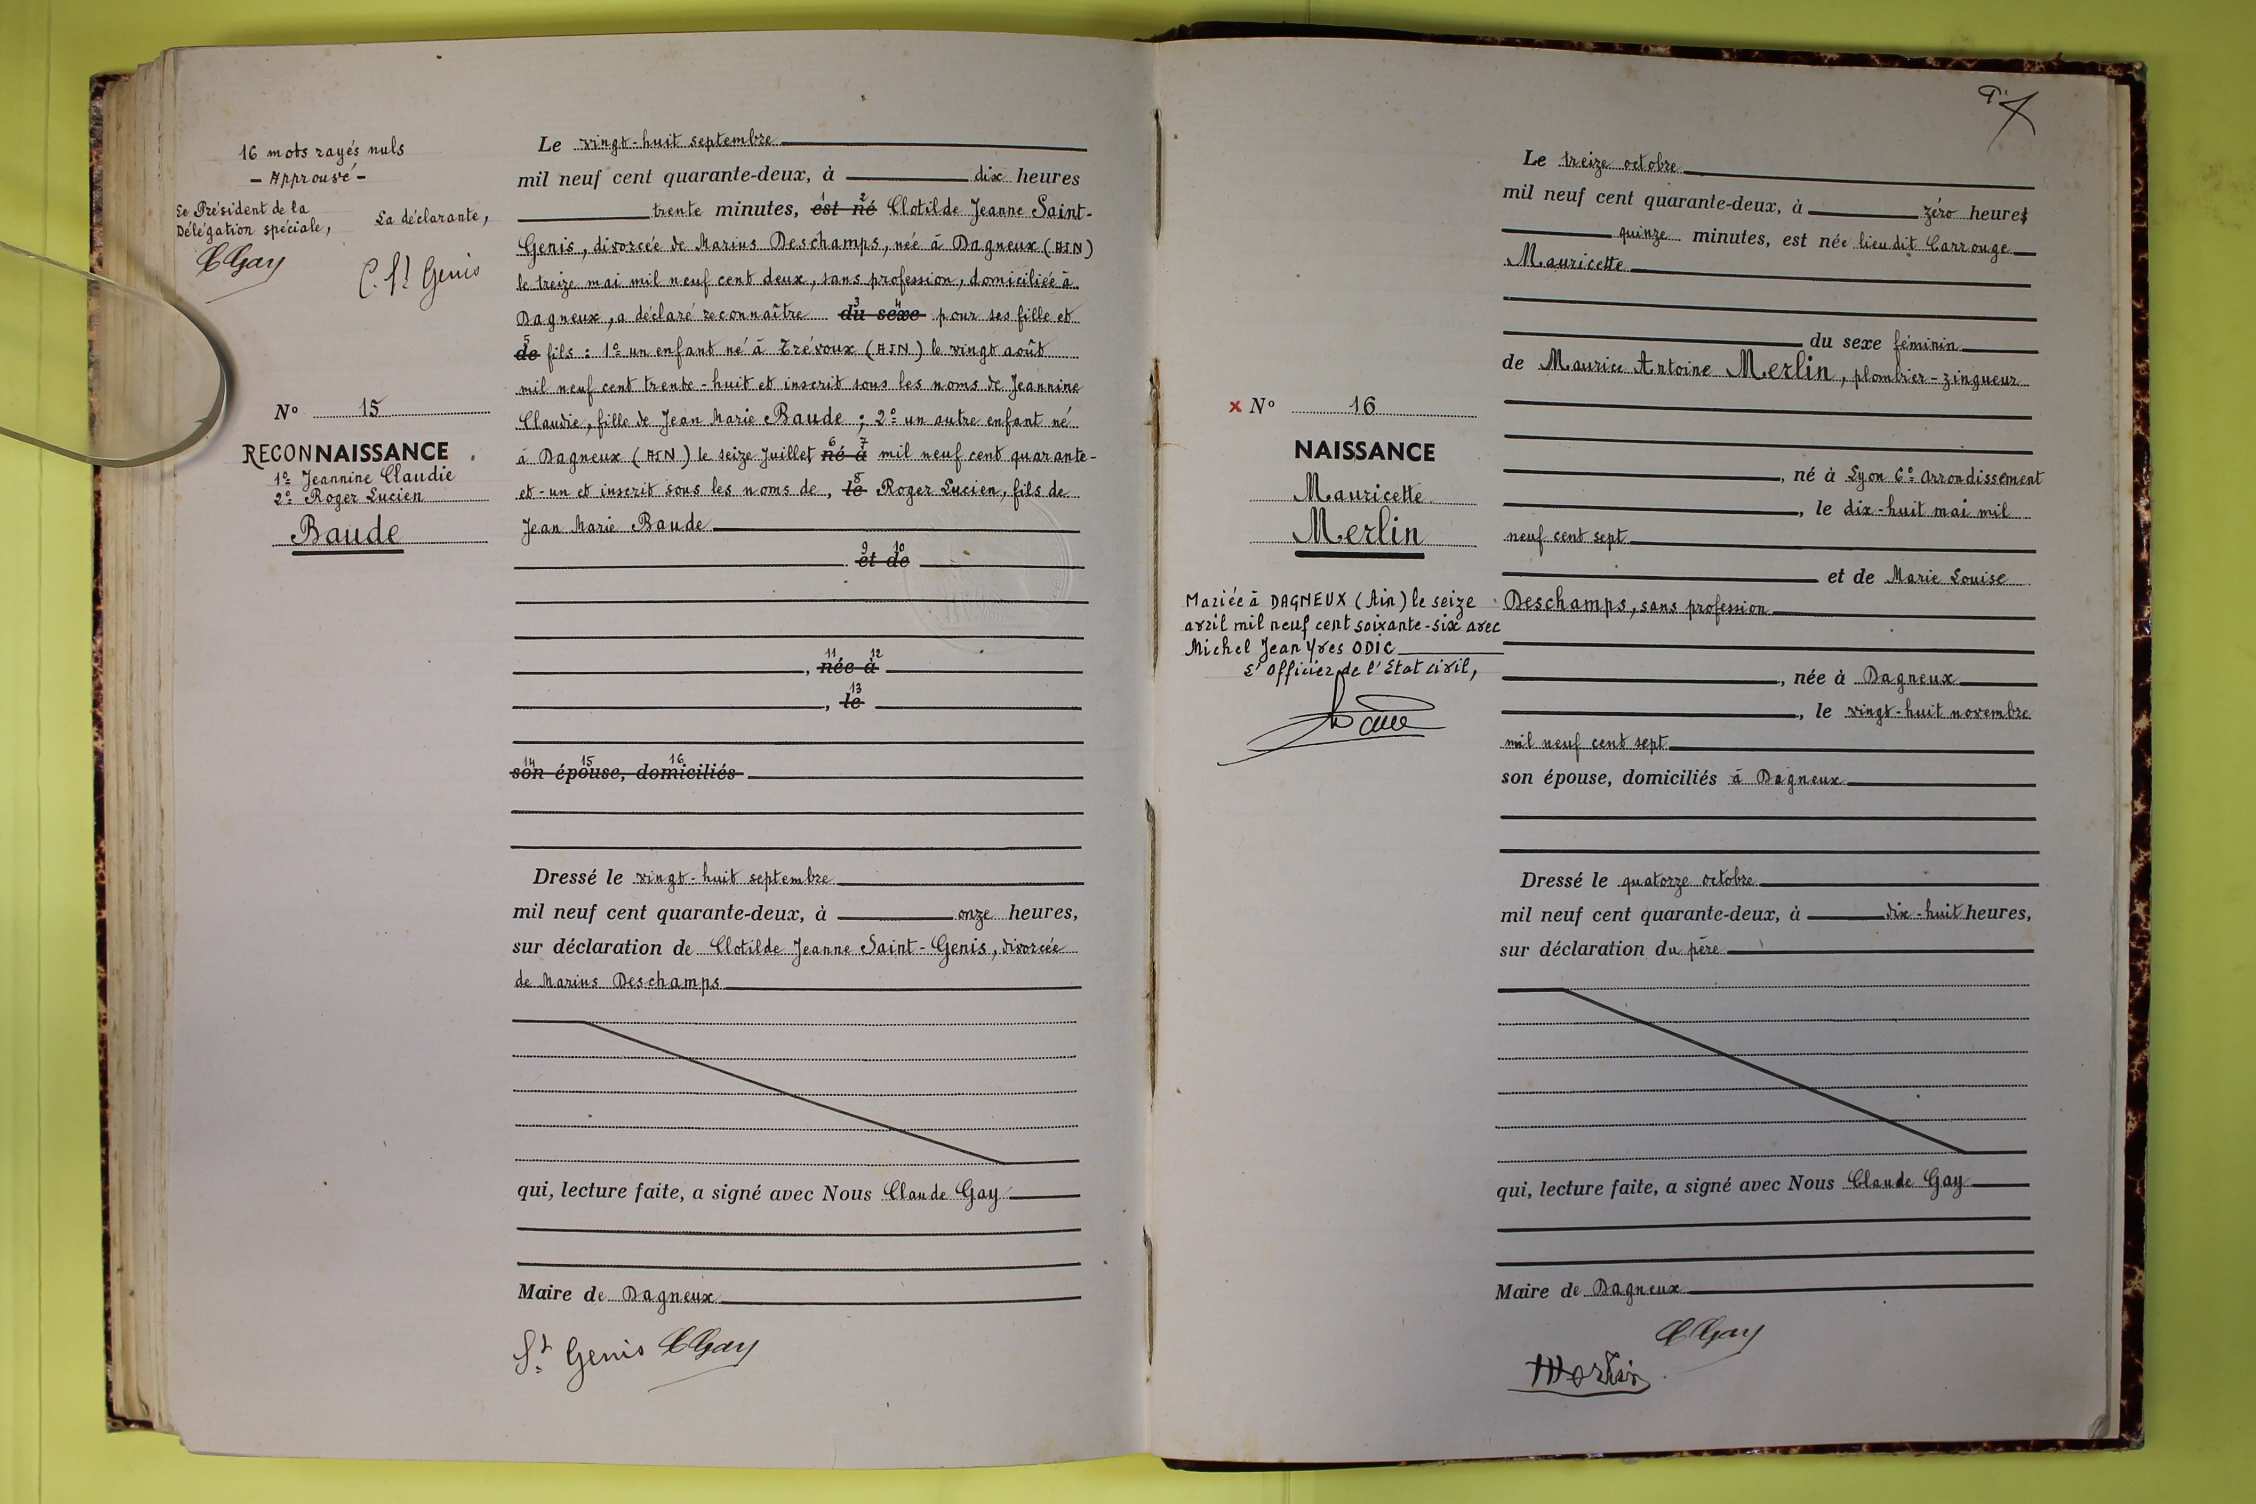 16 mots rayés nuls
- Approuvé -
Le Président de la
Délégation spéciale,
La déclarante,
C Gay
C. St Genis
N° 15
RECONNAISSANCE
1° Jeannine Claudie
2° Roger Lucien
Baude
Le vingt-huit septembre
mil neuf cent quarante-deux, à dix heures
trente minutes, 1 est 2 né Clotilde Jeanne Saint-
Genis, divorcée de Marius Deschamps, née à Dagneux (AIN)
le treize mai mil neuf cent deux, sans profession, domiciliée à
Dagneux, a déclaré reconnaître 3 du 4 sexe pour ses fille et
5 de fils : 1° un enfant né à Trévoux (AIN) le vingt août
mil neuf cent trente-huit et inscrit sous les noms de Jeannine
Claudie, fille de Jean Marie Baude ; 2° un autre enfant né
à Dagneux (AIN) le seize Juillet 6 né 7 à mil neuf cent quarante-
et-un et inscrit sous les noms de, 8 le Roger Lucien, fils de
Jean Marie Baude
9 et 10 de
, 11 née 12 à
, 13 le
14 son 15 épouse, 16 domiciliés
Dressé le vingt-huit septembre
mil neuf cent quarante-deux, à onze heures,
sur déclaration de Clotilde Jeanne Saint-Genis, divorcée
de Marius Deschamps
qui, lecture faite, a signé avec Nous Claude Gay
Maire de Dagneux
St Genis C Gay
x N° 16
NAISSANCE
Mauricette
Merlin
Mariée à DAGNEUX (Ain) le seize
avril mil neuf cent soixante-six avec
Michel Jean Yves ODIC
L'Officier de l'Etat civil,
Le treize octobre
mil neuf cent quarante-deux, à zéro heures
quinze minutes, est née lieu dit Carrouge
Mauricette
du sexe féminin
de Maurice Antoine Merlin, plombier-zingueur
, né à Lyon 6° Arrondissement
, le dix-huit mai mil
neuf cent sept
et de Marie Louise
Deschamps, sans profession
, née à Dagneux
, le vingt-huit novembre
mil neuf cent sept
son épouse, domiciliés à Dagneux
Dressé le quatorze octobre
mil neuf cent quarante-deux, à dix-huit heures,
sur déclaration du père
qui, lecture faite, a signé avec Nous Claude Gay
Maire de Dagneux
C Gay
Merlin